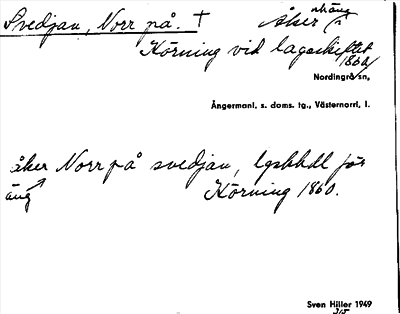 Svedjan, Norr på. † Åker o. äng
Körning vid lagaskiftet
1860
Nordingrå sn,
Ångermanl. s. doms. tg., Västernorrl. l.
åker Norr på svedjan, lgskhdl för
äng Körning 1860.
Sven Hiller 1949